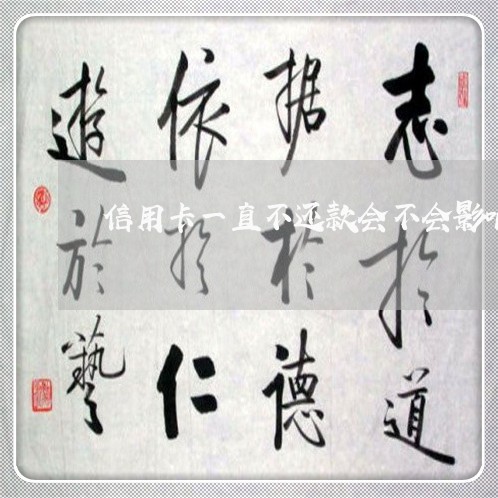 志於道
据於德
依於仁
遊於藝
信用卡一直不还款会不会影